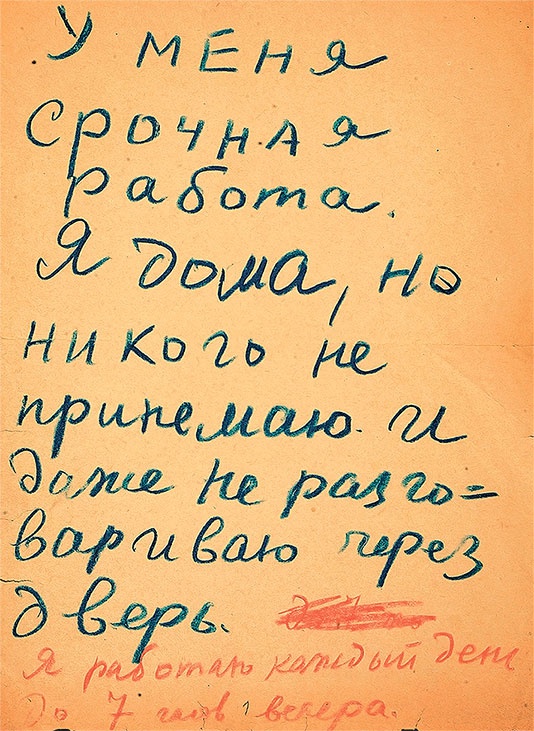 У МЕНЯ
СРОЧНАЯ
работа.
Я дома, но
никого не
принемаю. И
даже не разго=
вариваю через
дверь.
Я работаю каждый день
до 7 часов вечера.